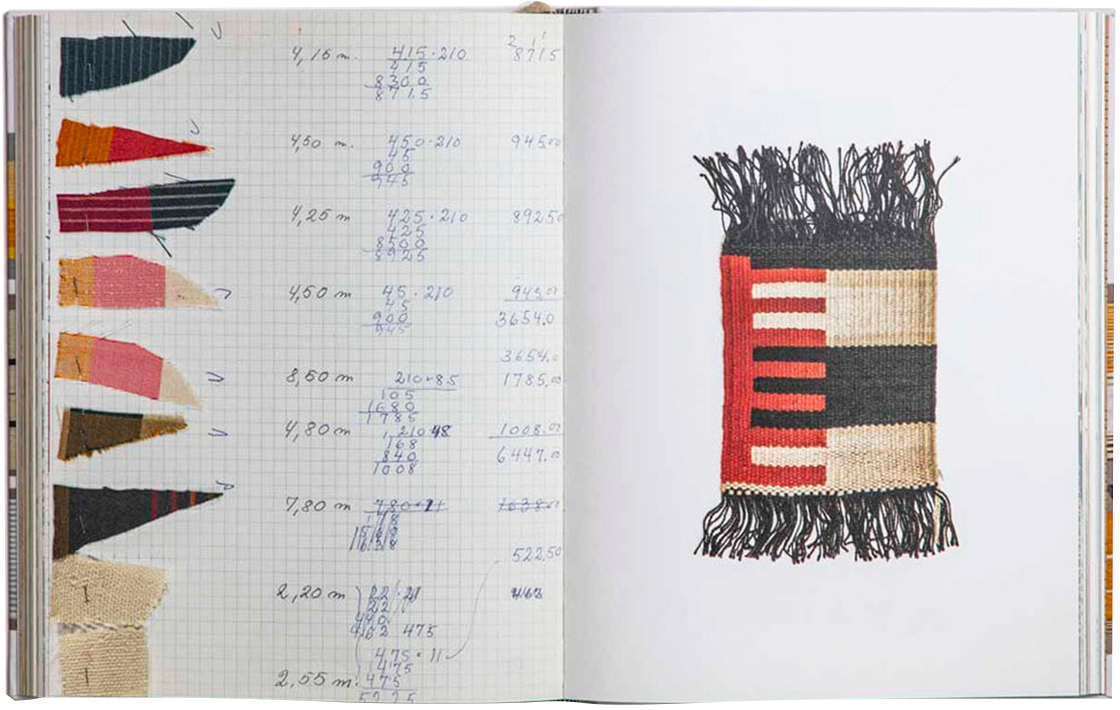 2 1
4,15 m. 415·210 8715
415
8300
8715
4,50 m. 450·210 945,00
45
900
945
4,25 m 425·210 89250
425
8500
8925
4,50 m 45·210 945,00
45
900
945
3654,0
3654,0
8,50 m 210·85 1785,00
105
1680
1785
4,80 m 210 48 1008,00
168
840
1008
6447,00
7,80 m
522,50
2,20 m 22·21
22
440
462 475
475·11
475
2,55 m. 475
5225